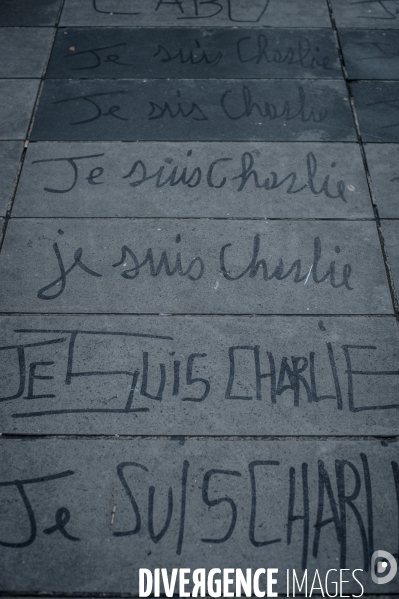 CABU
Je suis Charlie
Je suis Charlie
Je suis Charlie
je suis Charlie
Je SUIS CHARLIE
Je SUIS CHARLI
DIVERGENCE IMAGES